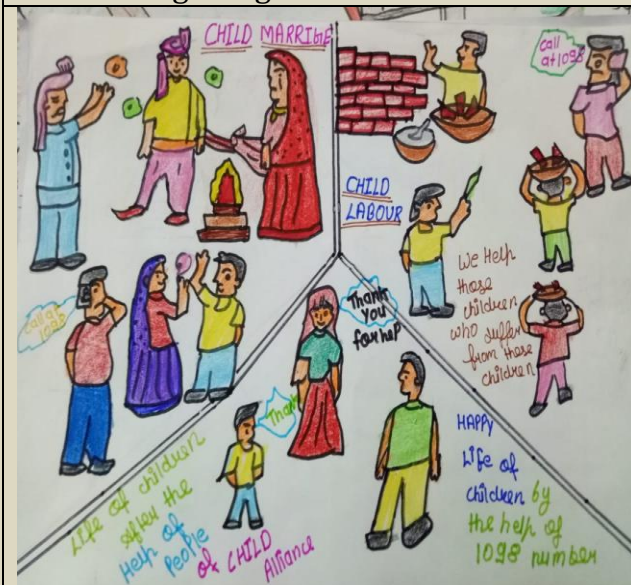 CHILD MARRIGE
call
at 1098
CHILD
LABOUR
We Help
those
children
who suffer
from these
children
call at
1098
Thank
You
for help
Thank
Life of children
after the
Help of
People
of CHILD
Alliance
HAPPY
Life of
children by
the help of
1098 number